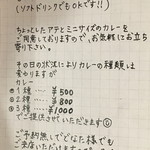 (ソフトドリンクもOKです!!)
ちょっとしたアテとミニサイズのカレーを
ご用意しておりますので、お気軽にお立ち
寄り下さい。
その日の状況によりカレーの種類は
変わりますが
カレー
① 1種 ---- ¥500
② 2種 ---- ¥800
③ 3種 ---- ¥1000
でご提供させていただきます
ご予約無しでどなた様でも